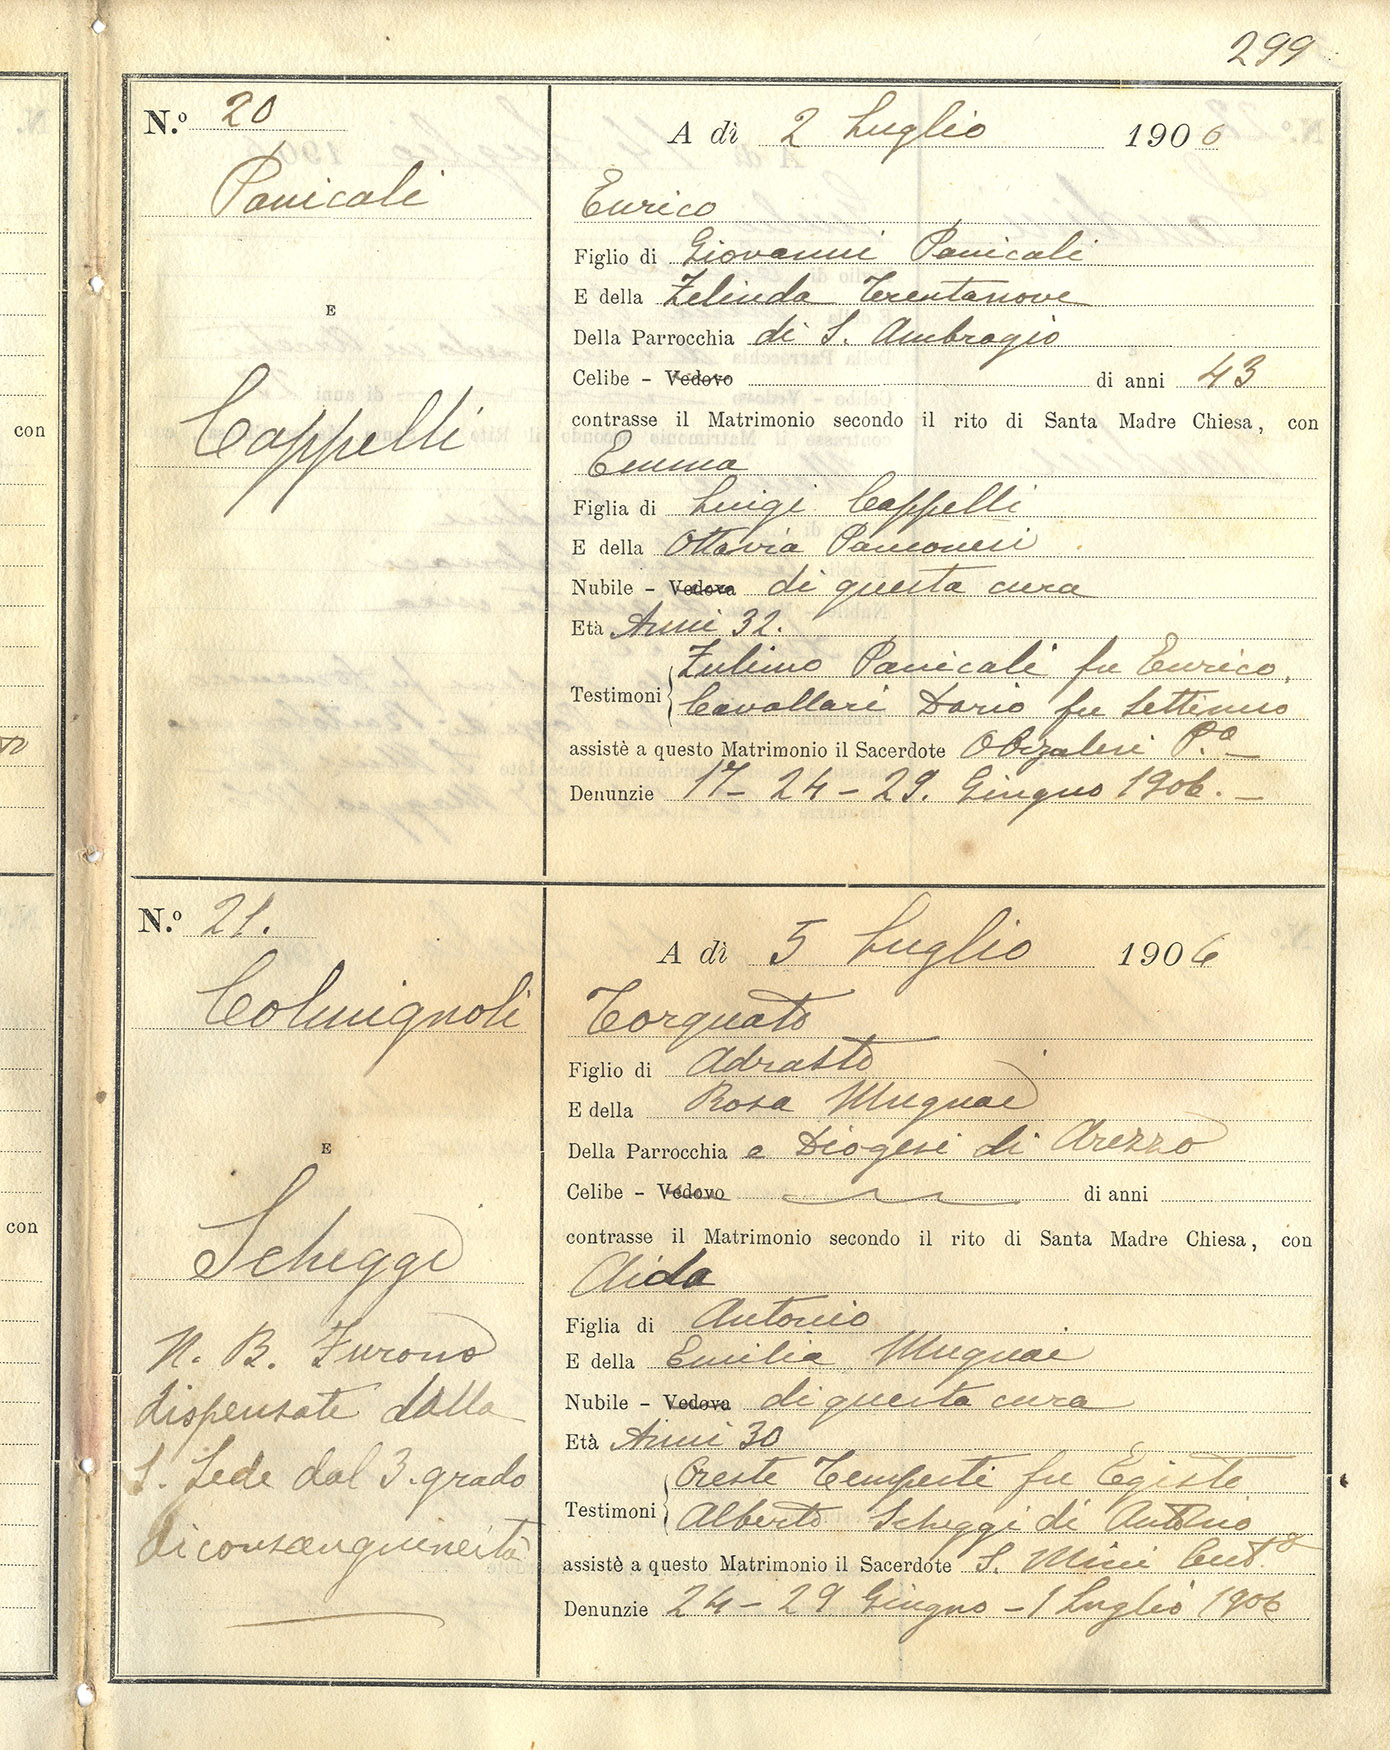 299
N.º 20
Panicali
E
Cappelli
A dì 2 Luglio 1906
Enrico
Figlio di Giovanni Panicali
E della Zelinda Trentanove
Della Parrocchia di S. Ambrogio
Celibe - Vedovo di anni 43
contrasse il Matrimonio secondo il rito di Santa Madre Chiesa, con
Emma
Figlia di Luigi Cappelli
E della Ottavia
Nubile - Vedova di questa cura
Età Anni 32.
Zulimo Panicali fu Enrico.
Testimoni
Cavallari Dario fu Settimio
assistè a questo Matrimonio il Sacerdote P.º
Denunzie 17 - 24 - 29. Giugno 1906. -
N.º 21.
Colmignoli
E
Scheggi
N. B. Furono
dispensate dalla
S. Sede dal 3. grado
di consanguineità
A dì 5 Luglio 1906
Torquato
Figlio di Adrasto
E della Rosa Mugnai
Della Parrocchia e Diogesi di Arezzo
Celibe - Vedovo di anni
contrasse il Matrimonio secondo il rito di Santa Madre Chiesa, con
Aida
Figlia di Antonio
E della Emilia Mugnai
Nubile - Vedova di questa cura
Età Anni 30
Oreste Tempesti fu Egisto
Testimoni
Alberto Scheggi di Antonio
assistè a questo Matrimonio il Sacerdote S. Mini
Denunzie 24 - 29 Giugno - 1 Luglio 1906
con
con